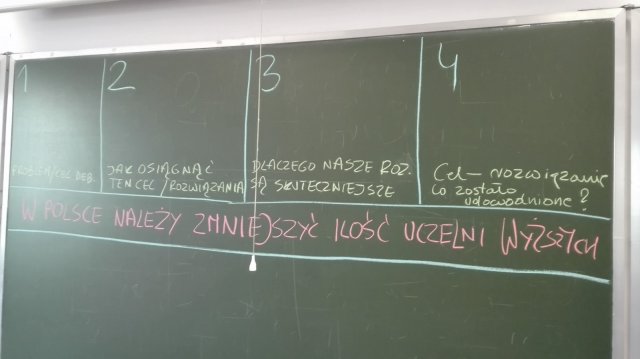 1
PROBLEM/CEL DEB.
2
JAK OSIĄGNĄĆ
TEN CEL/ROZWIĄZANIA
3
DLACZEGO NASZE ROZ.
SĄ SKUTECZNIEJSZE
4
Cel – rozwiązanie
co zostało
udowodnione?
W POLSCE NALEŻY ZMNIEJSZYĆ ILOŚĆ UCZELNI WYŻSZYCH